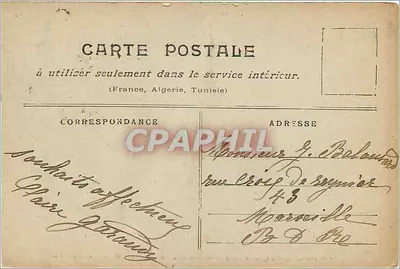 CARTE POSTALE
à utiliser seulement dans le service intérieur.
(France, Algérie, Tunisie)
CORRESPONDANCE
ADRESSE
CPAPHIL
souhaits affectueux
Claire
Monsieur J.
rue Croix de Reynier
43
Marseille
B D Re